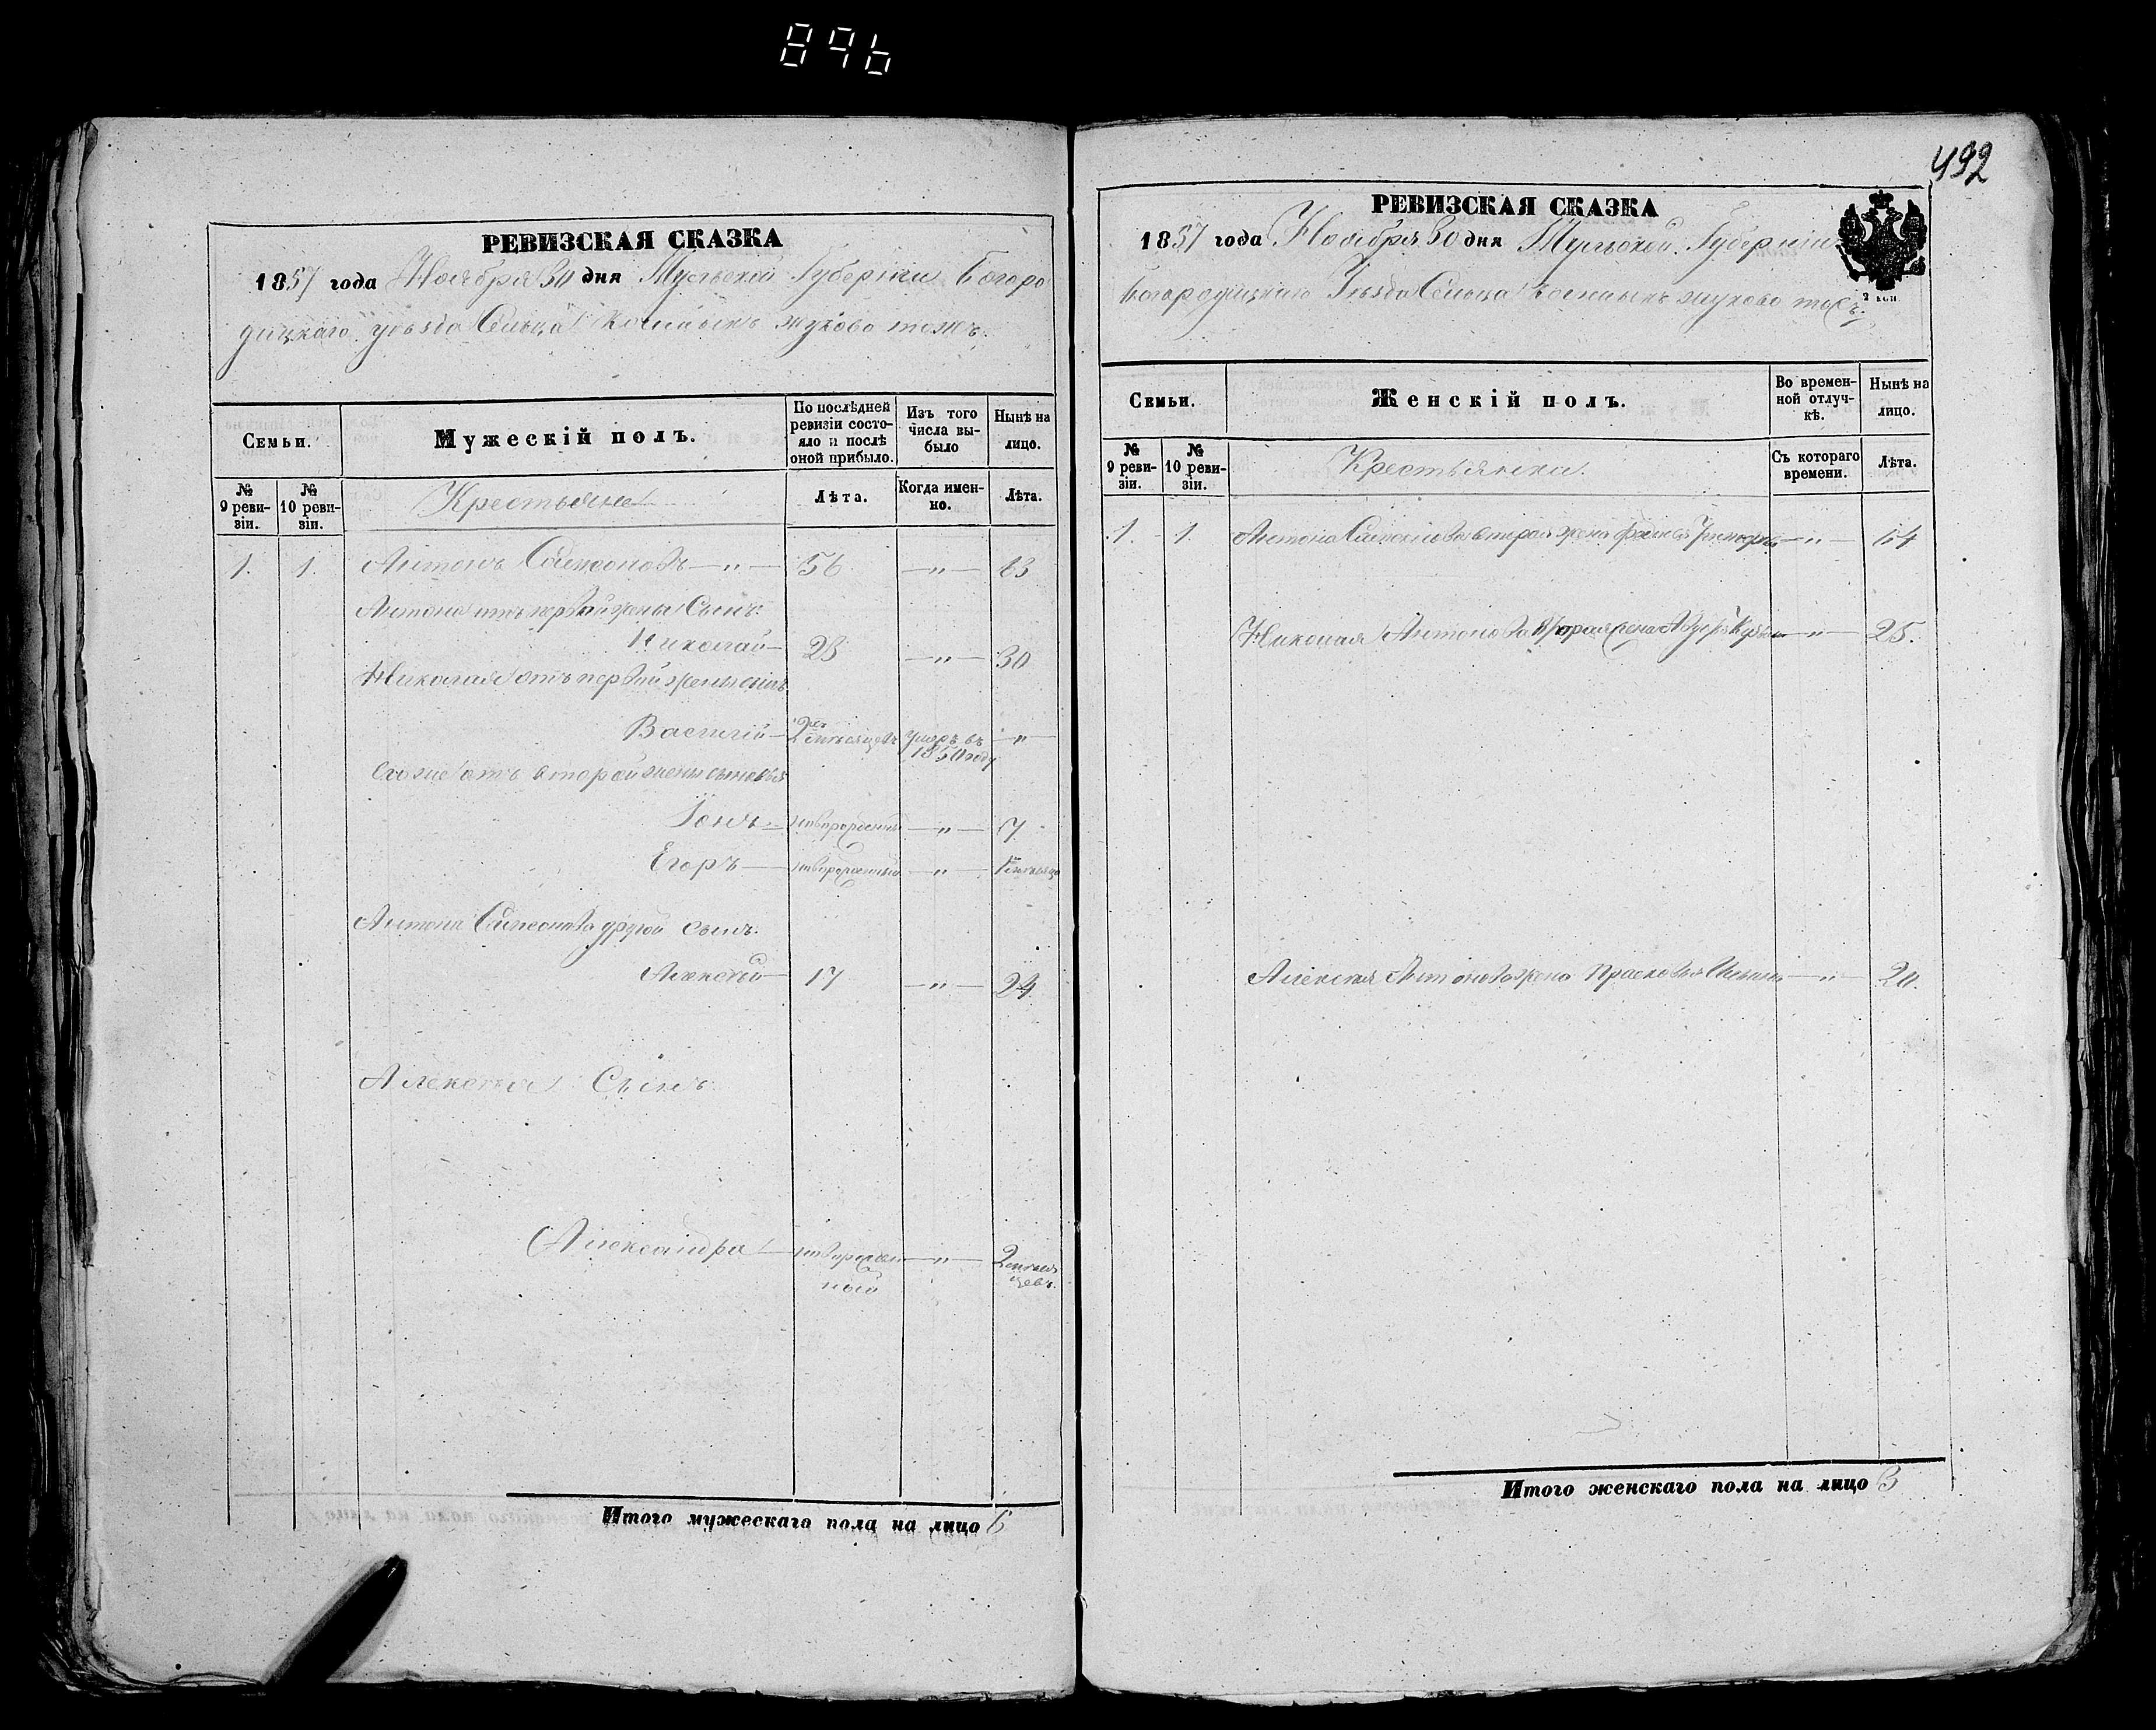 896
РЕВИЗСКАЯ СКАЗКА
1857 года Ноября 30 дня Тульской Губерніи Богоро
дицкаго уѣзда Сельца жуково тожъ.
Семьи.
Мужескій полъ.
По послѣдней ревизіи состо-яло и послѣ оной прибыло.
Изъ того числа вы-было
Нынѣ на лицо.
№ 9 реви-зіи.
№ 10 реви-зіи.
Крестьяне
Лѣта.
Когда имен-но.
Лѣта.
1. 1. Антонъ Самсоновъ —"— 56 —"— 63
Антона отъ первой жены Сынъ.
Николай — 23 —"— 30
Николая отъ первой жены сынъ
Василій — 2хъ мѣсяцевъ умеръ въ 1850 году —"—
Его же отъ второй жены сыновья
Іонъ — новорожденъ —"— 7
Егоръ — новорожденный —"— 1 мѣсяца
Антона Самсонова другой сынъ.
Алексѣй — 17 —"— 24
Алексѣя Сынъ
Александра — новорожден —"— 2 мѣся
ный цевъ.
Итого мужескаго пола на лицо 6
492
РЕВИЗСКАЯ СКАЗКА
1857 года Ноября 30 дня Тульской Губерніи
Богородицкаго Уѣзда Сельца жуково тожъ.
Семьи.
Женскій полъ.
Во времен-ной отлуч-кѣ.
Нынѣ на лицо.
№ 9 реви-зіи.
№ 10 реви-зіи.
Крестьянки.
Съ котораго времени.
Лѣта.
1. 1. Антона Самсонова вторая жена —"— 54
Николая Антонова вторая жена —"— 25.
Алексѣя Антонова жена Прасковья —"— 20.
Итого женскаго пола на лицо 3